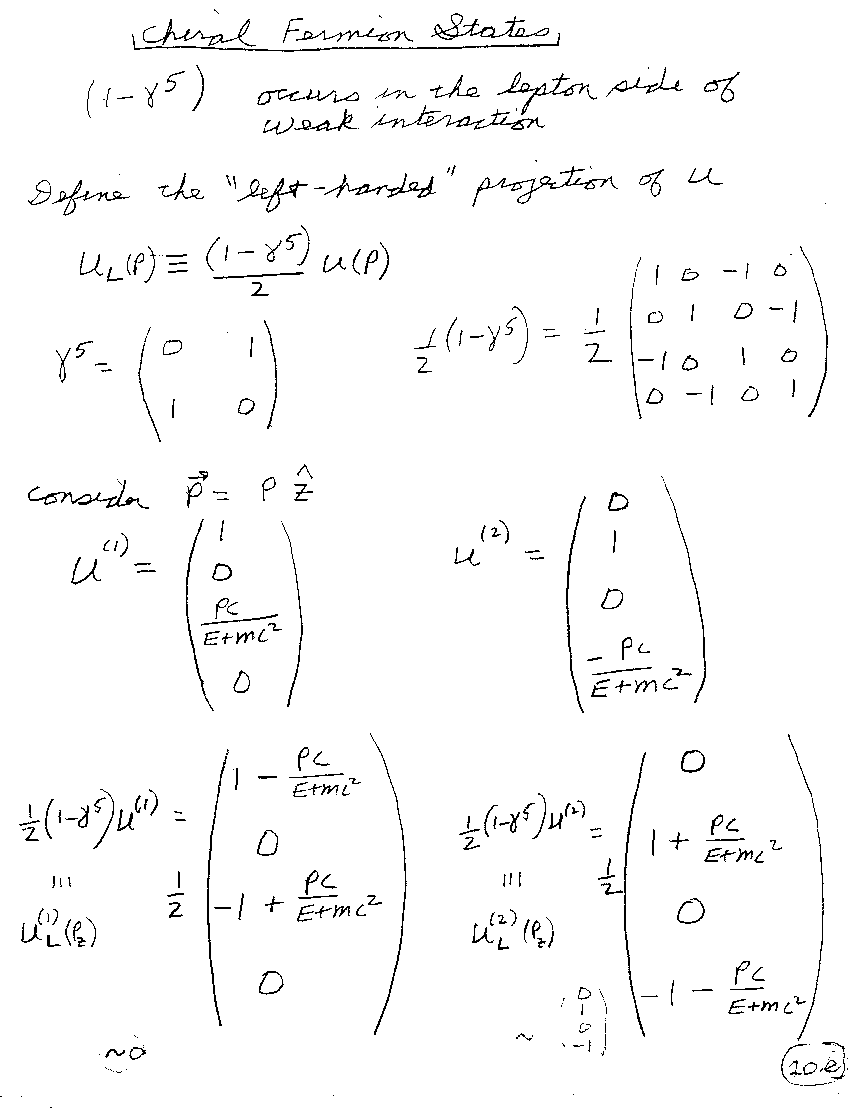 Chiral Fermion States
(1-γ⁵) occurs in the lepton side of
weak interaction
Define the "left-handed" projection of u
u_L(p) ≡ (1-γ⁵)/2 u(p)
γ⁵ = ( 0 1 ; 1 0 )
1/2 (1-γ⁵) = 1/2 ( 1 0 -1 0 ; 0 1 0 -1 ; -1 0 1 0 ; 0 -1 0 1 )
consider p⃗ = p ẑ
u⁽¹⁾ = ( 1 ; 0 ; pc/(E+mc²) ; 0 )
u⁽²⁾ = ( 0 ; 1 ; 0 ; -pc/(E+mc²) )
1/2 (1-γ⁵) u⁽¹⁾ = 1/2 ( 1 - pc/(E+mc²) ; 0 ; -1 + pc/(E+mc²) ; 0 )
≡
u_L⁽¹⁾(p_z)
~0
1/2 (1-γ⁵) u⁽²⁾ = 1/2 ( 0 ; 1 + pc/(E+mc²) ; 0 ; -1 - pc/(E+mc²) )
≡
u_L⁽²⁾(p_z)
~ ( 0 ; 1 ; 0 ; -1 )